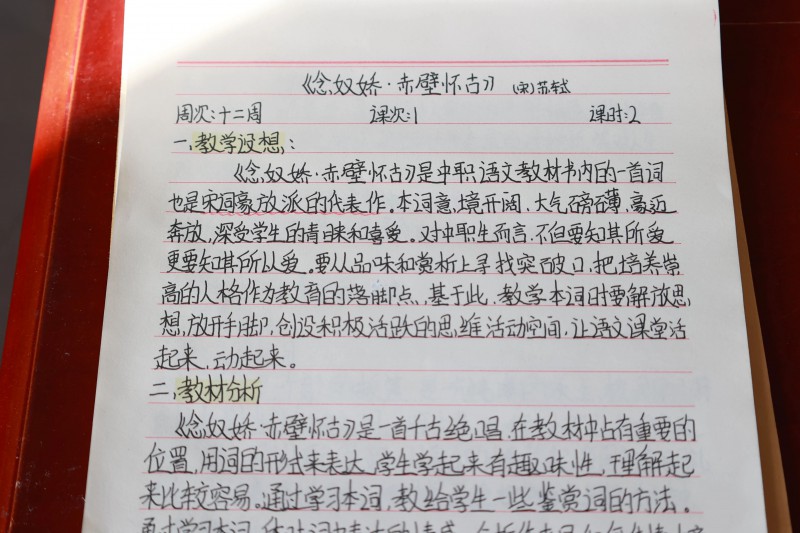 《念奴娇·赤壁怀古》 (宋)苏轼
周次:十二周 课次:1 课时:2
一、教学设想:
《念奴娇·赤壁怀古》是中职语文教材书内的一首词
也是宋词豪放派的代表作。本词意境开阔,大气磅礴,豪迈
奔放,深受学生的青睐和喜爱。对中职生而言,不但要知其所爱
更要知其所以爱。要从品味和赏析上寻找突破口,把培养崇
高的人格作为教育的落脚点,基于此,教学本词时要解放思
想,放开手脚,创设积极活跃的思维活动空间,让语文课堂活
起来,动起来。
二、教材分析
《念奴娇·赤壁怀古》是一首千古绝唱,在教材中占有重要的
位置,用词的形式来表达,学生学起来有趣味性,理解起
来比较容易。通过学习本词,教给学生一些鉴赏词的方法。
通过学习本词,体